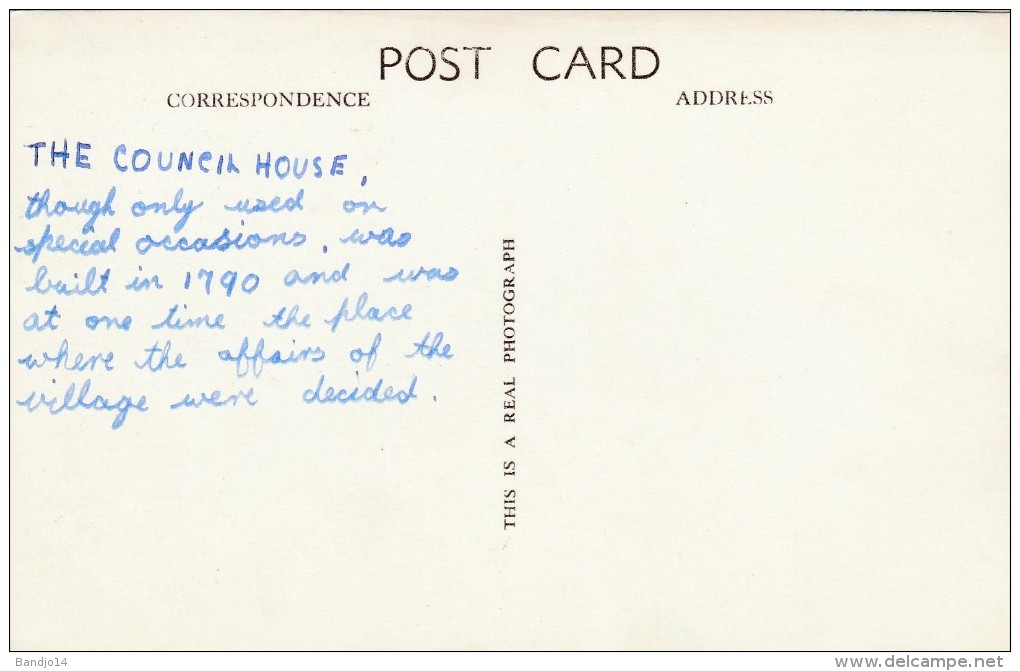 POST CARD
CORRESPONDENCE
ADDRESS
THE COUNCIL HOUSE,
though only used on
special occasions, was
built in 1790 and was
at one time the place
where the affairs of the
village were decided.
THIS IS A REAL PHOTOGRAPH
Bandjo14
www.delcampe.net